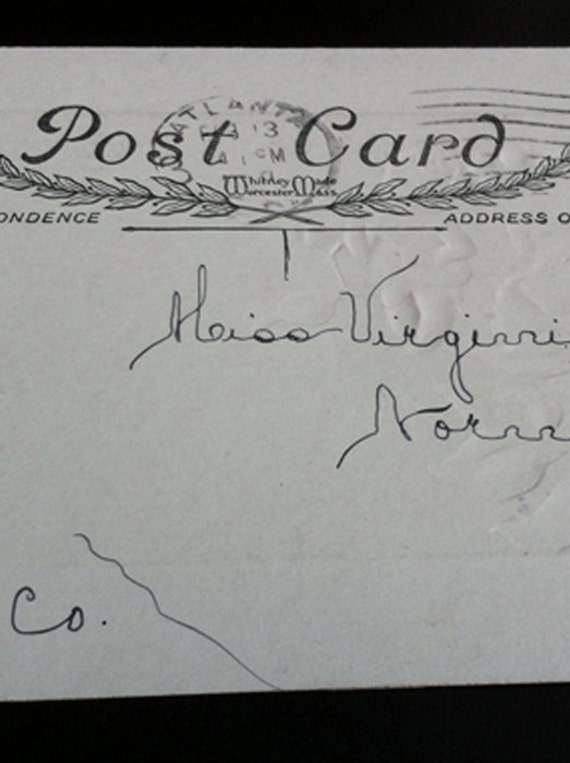 Post Card
ATLANTA
13
M
Whitney Made
Worcester Mass.
ONDENCE
ADDRESS O
Miss Virgini
Norm
Co.